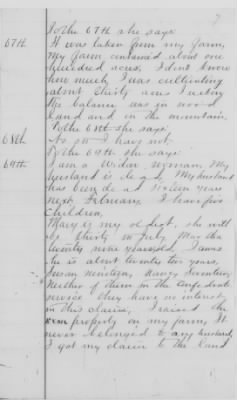 7
To the 67th she says:
67th It was taken from my farm,
My farm contained about one
hundred acres, I don't know
how much I was cultivating
about thirty acres I reckon
The balance was in wood
land and in the mountain.
To the 68th she says:
68th No sir I have not
To the 69th she says:
69th I am a Widow woman, My
husband is dead, My husband
has been dead sixteen years
next February. I have five
Children,
Mary is my oldest, she will
be thirty in July. Martha
twenty nine years old, James
he is about twenty two years,
Susan nineteen, Nancy Seventeen,
Neither of them in the Confederate
service they have no interest
in this claim, I raised the
property on my farm, It
never belonged to my husband,
I got my claim to the land